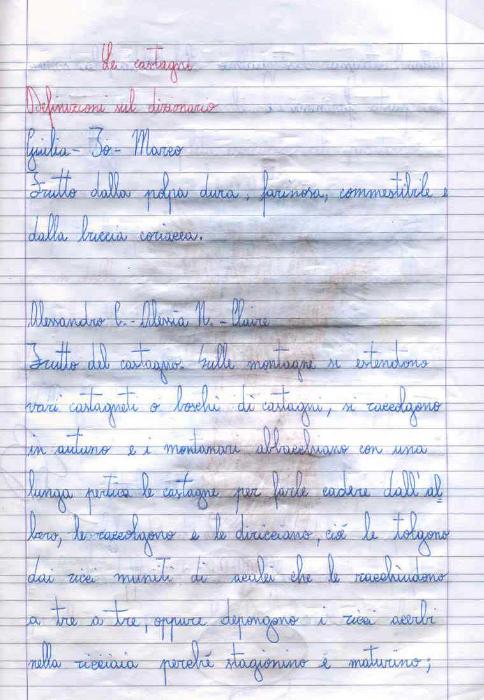 Le castagne
Definizioni sul dizionario
Giulia - Io - Marco
Frutto dalla polpa dura, farinosa, commestibile e
dalla buccia coriacea.
Alessandro C. - Alessia N. - Claire
Frutto del castagno. Sulle montagne si estendono
vari castagneti o boschi di castagni, si raccolgono
in autuno e i montanari abbacchiano con una
lunga pertica le castagne per farle cadere dall'al
bero, le raccolgono e le diricciano, cioé le tolgono
dai ricci muniti di aculei che le racchiudono
a tre a tre, oppure depongono i ricci acerbi
nella ricciaia perché stagionino e maturino;